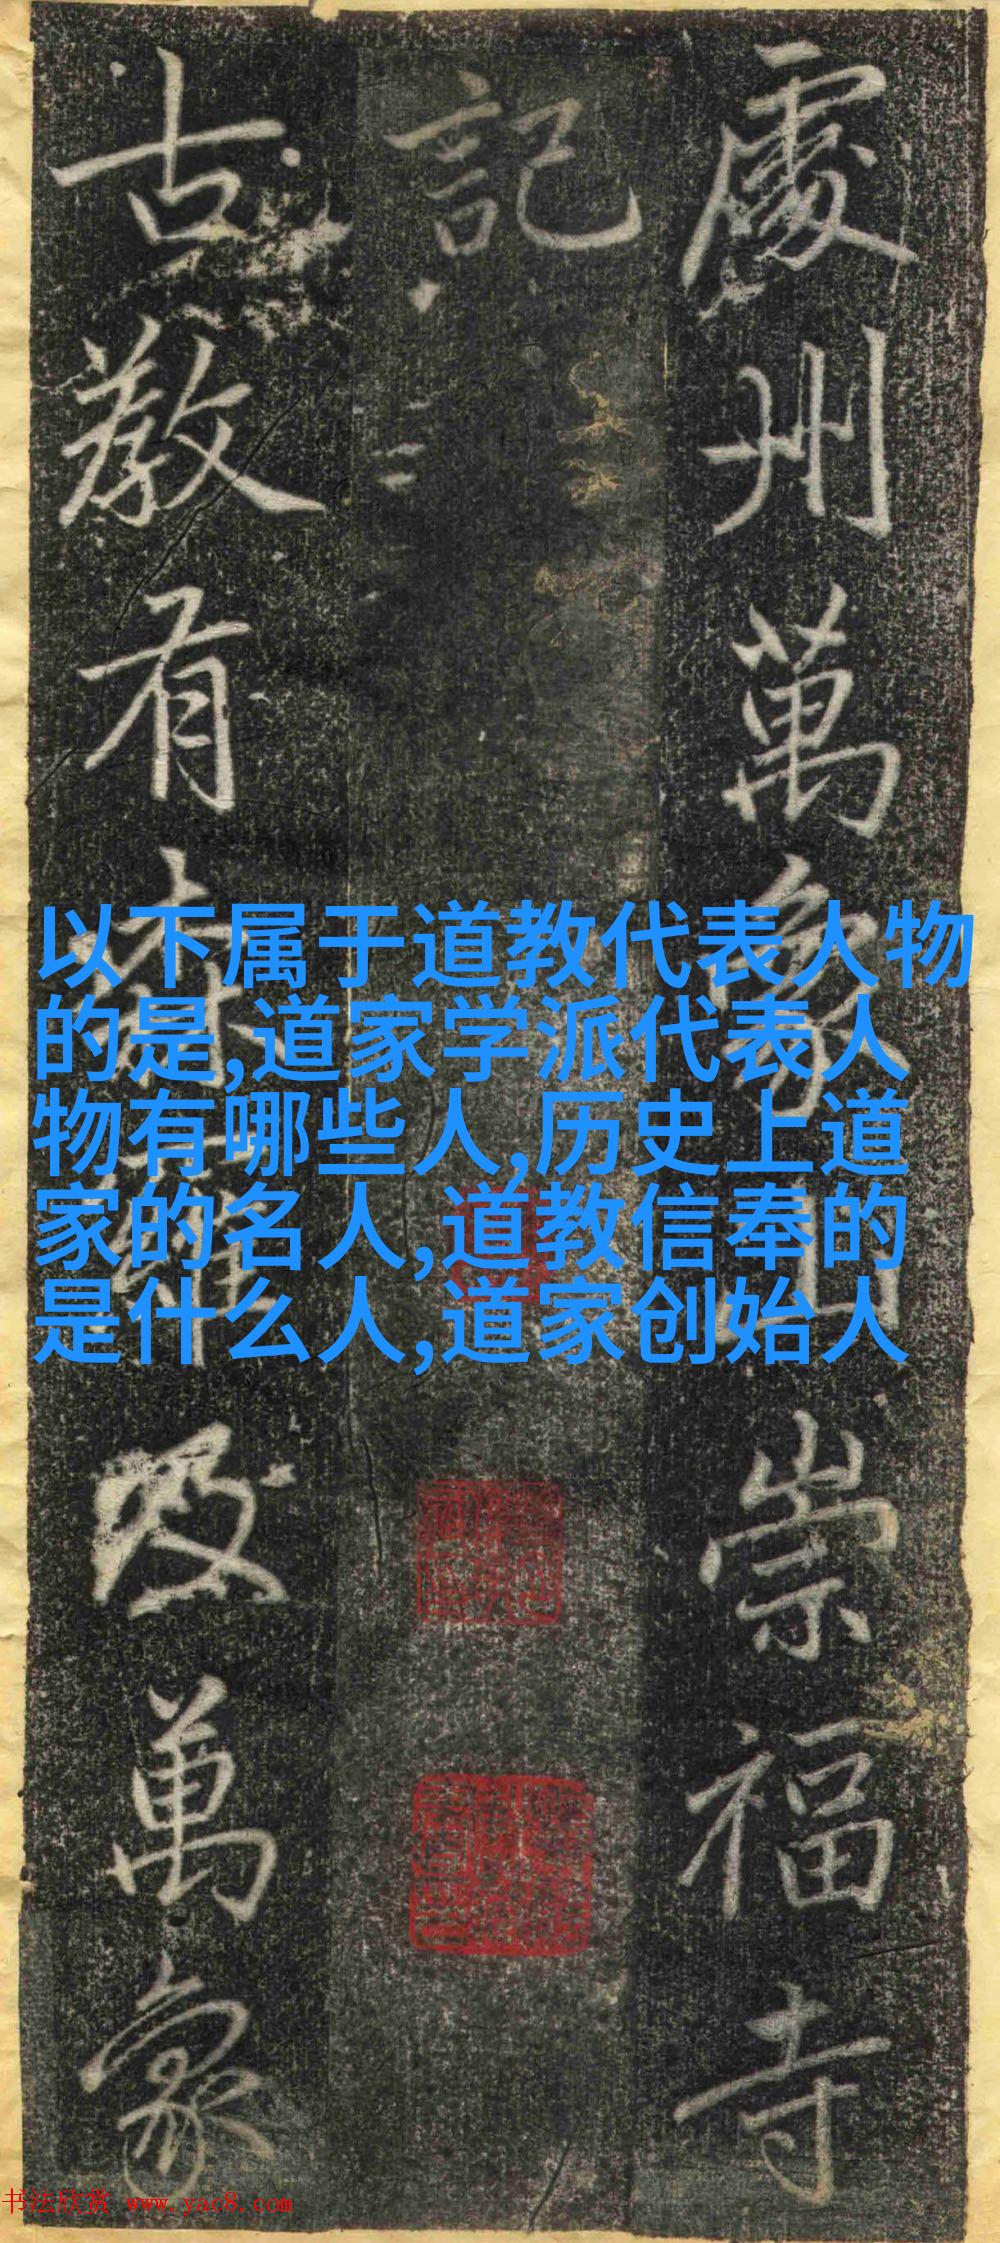 處州萬象山崇福寺
記
古教有萬象
以下属于道教代表人物
的是,道家学派代表人
物有哪些人,历史上道
家的名人,道教信奉的
是什么人,道家创始人
书法欣赏 www.yac8.com